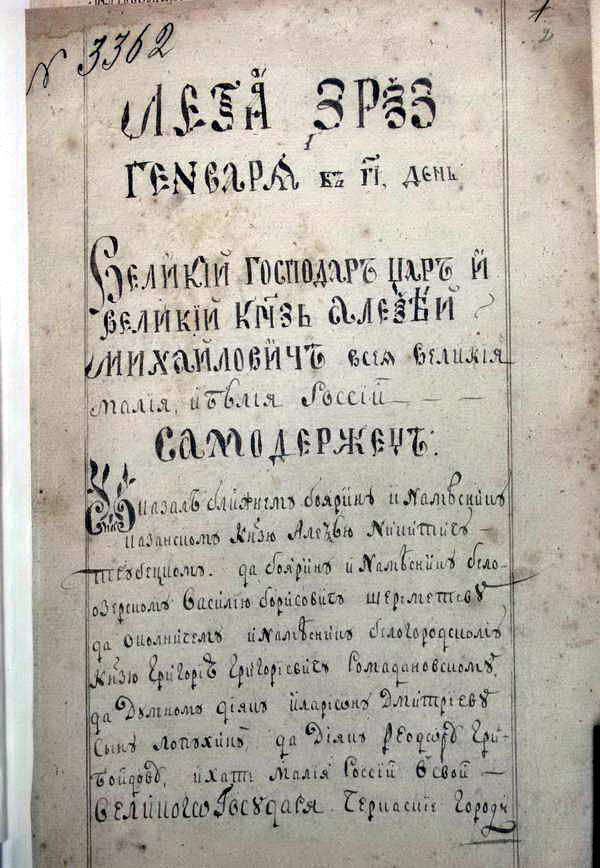 № 3362
ЛЕТА ЗРѮЗ
ГЕНВАРЯ въ ГІ, день
Великій господаръ царъ и
великій кнзь Алеѯѣй
Михайловичъ всея великія
малія, и бѣлія Россіи
Самодержецъ:
Указалъ ближнемъ бояринꙋ и Намѣсникꙋ
казанскомꙋ Кнзю Алеѯѣю Никитичꙋ
трꙋбецкомꙋ. да бояринꙋ и Намѣсникꙋ бело-
озерскомꙋ Василію борисовичꙋ шереметевꙋ
да околничемꙋ и Намѣсникꙋ белогородскомꙋ
Кнзю Григорію Григоріевичꙋ Ромадановскомꙋ,
да Дꙋмномꙋ діякꙋ иларионꙋ Дмитріевꙋ
Сынꙋ лопꙋхинꙋ, да Діякꙋ Ѳеодорꙋ Гри-
боѣдовꙋ, ихать малія Россіи въ свой
Великого Государя Черкаскіе Городи